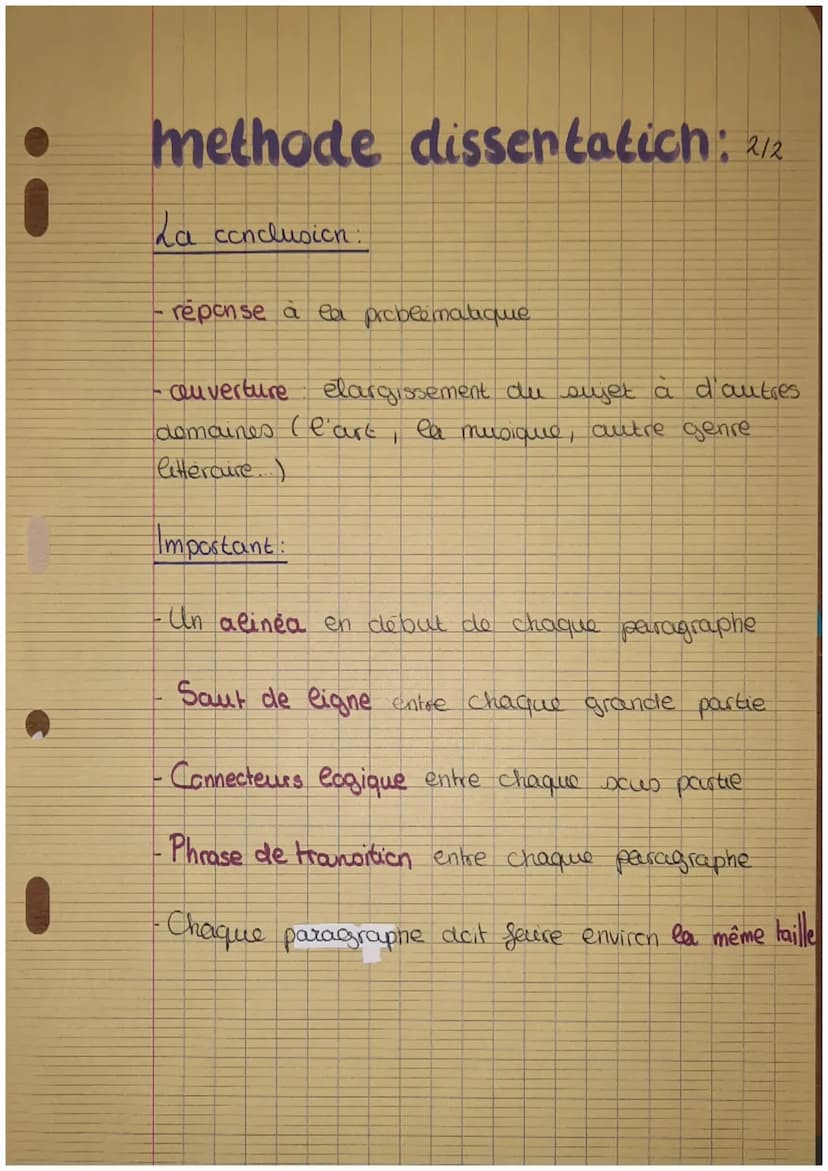 methode dissertation: 2/2
La conclusion:
- réponse à la problématique
- ouverture : élargissement du sujet à d'autres
domaines (l'art, la musique, autre genre
littéraire...)
Important:
- Un alinéa en début de chaque paragraphe
- Saut de ligne entre chaque grande partie
- Connecteurs logique entre chaque sous partie
- Phrase de transition entre chaque paragraphe
- Chaque paragraphe doit faire environ la même taille